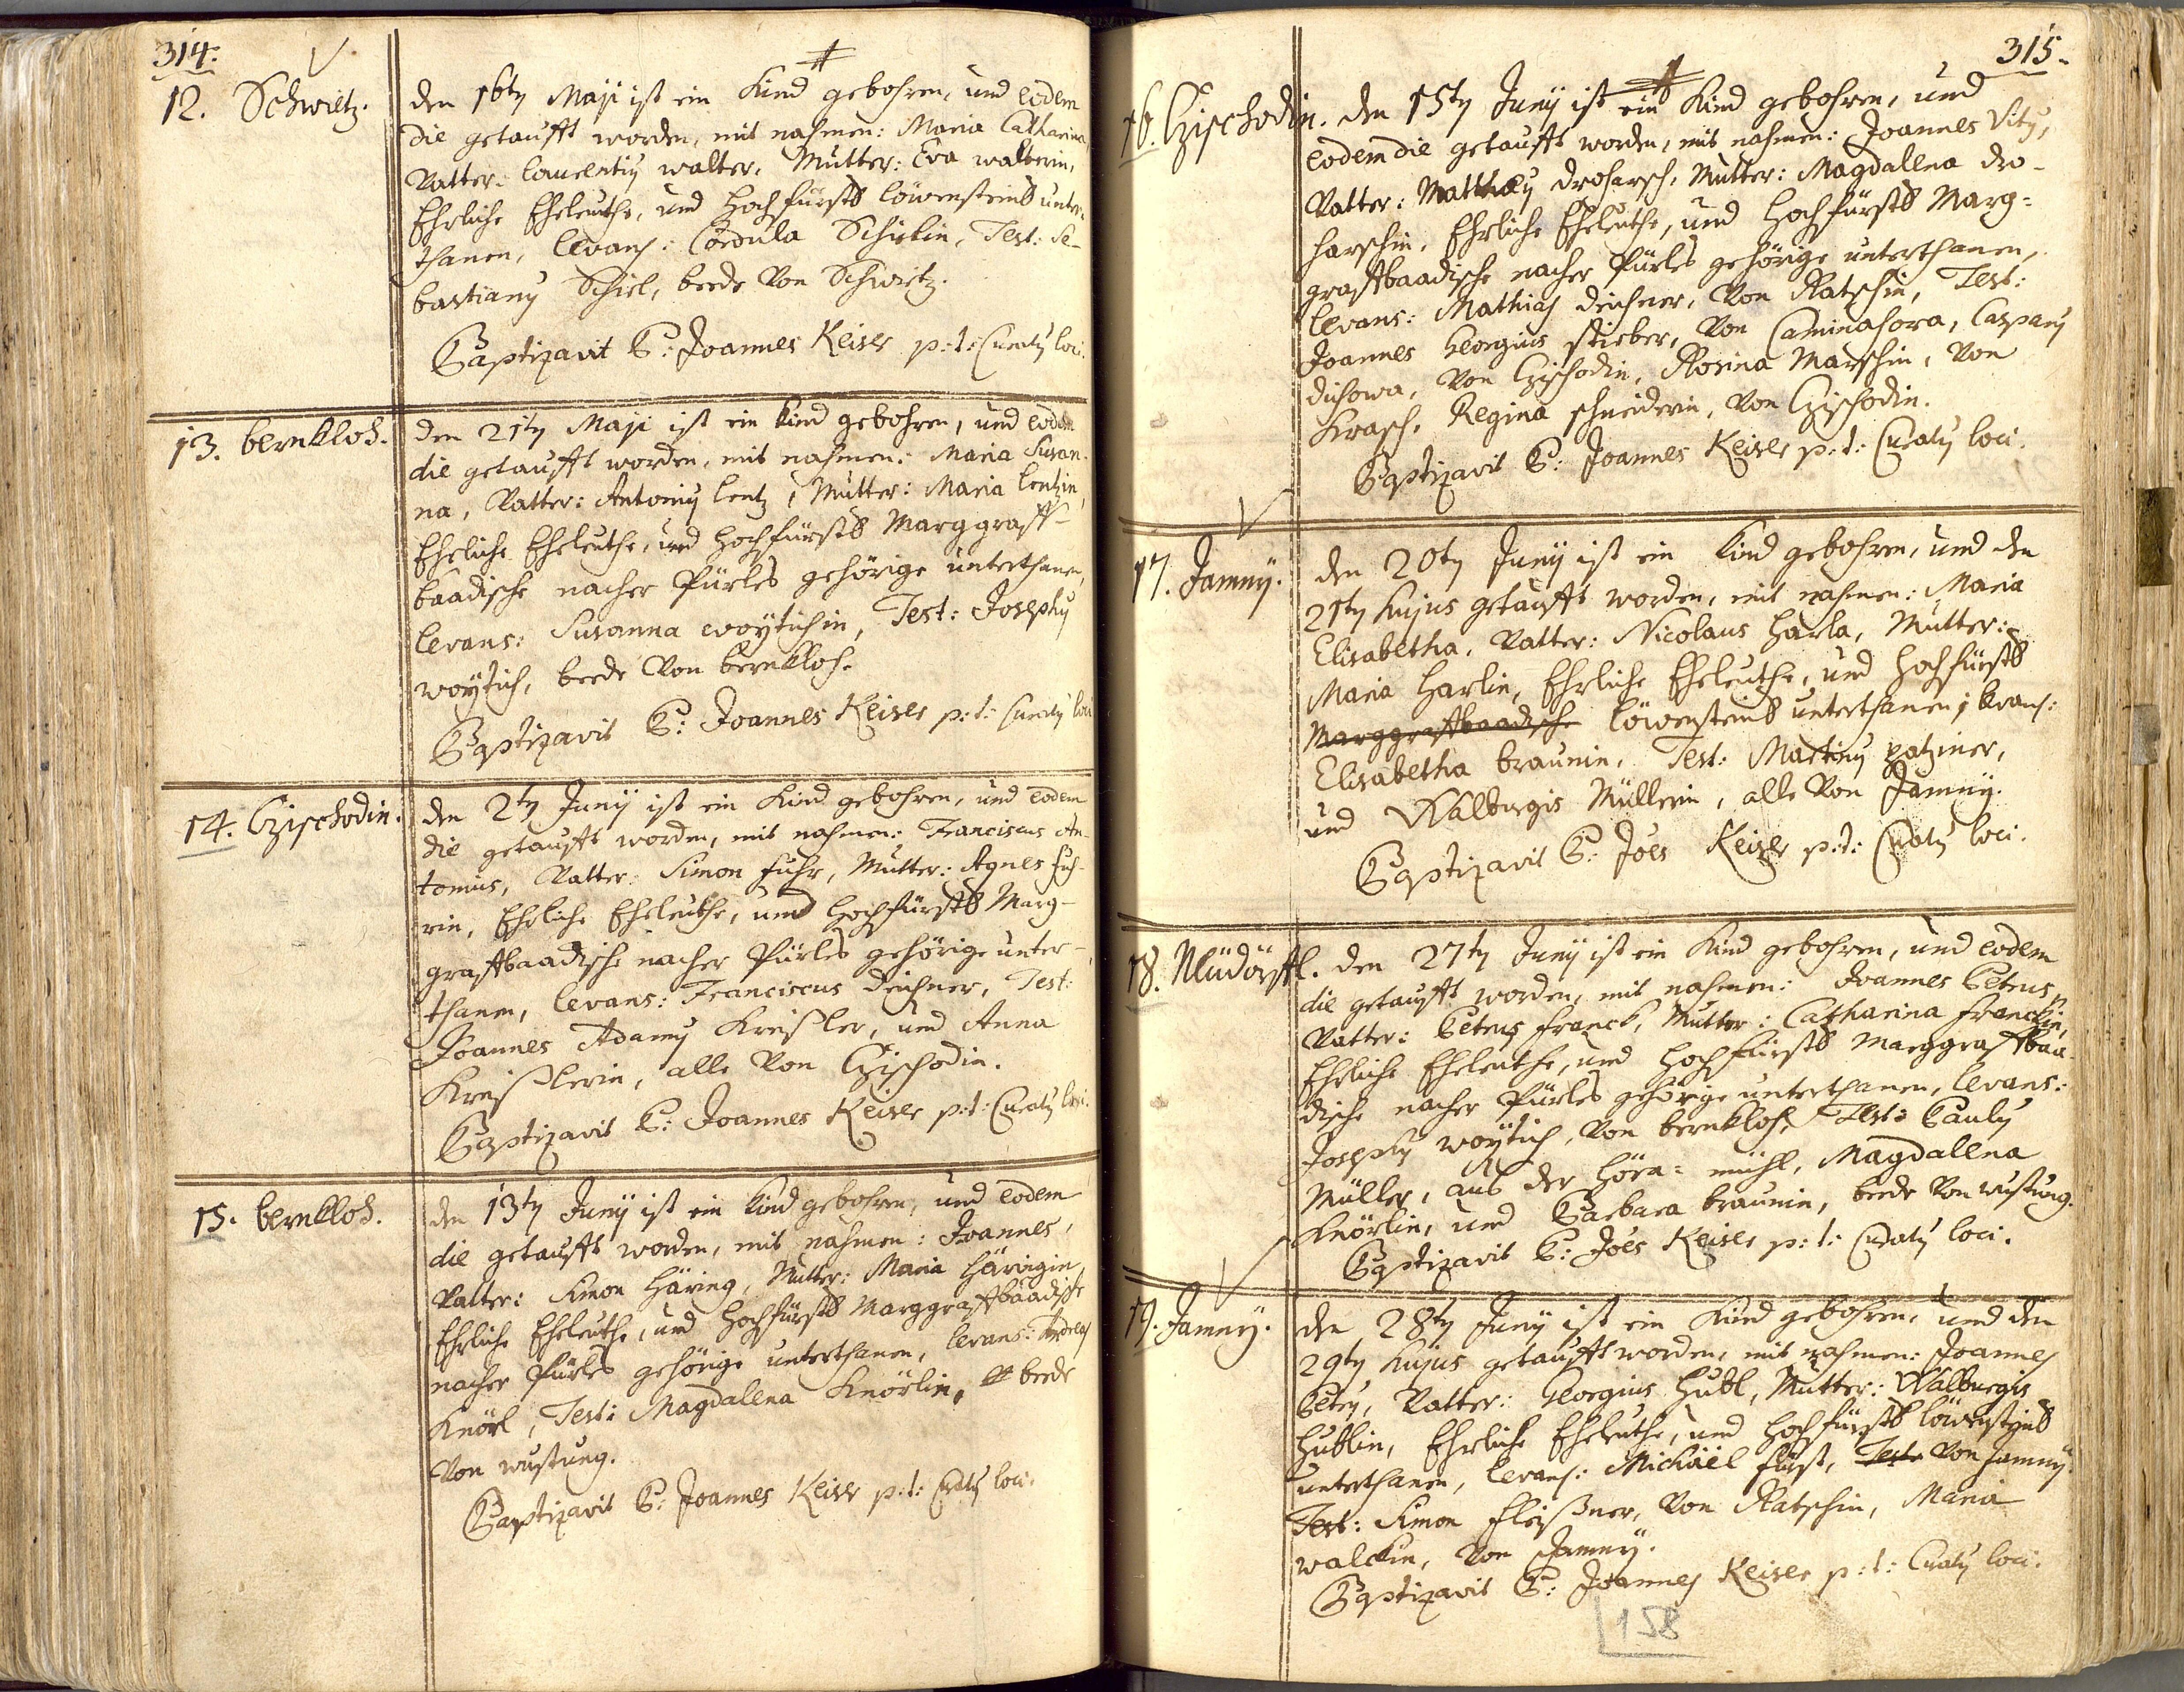 314.
12. Schwietz.
den 16ty Maji ist ein Kind gebohren, und eodem
die getaufft worden, mit nahmen: Maria Catharina
Vatter: Laurentiy walter, Mutter: Eva walterin,
Ehrliche Eheleuthe, und Hochfürstl löwensteinl unter-
thanen, levans: Cordula Schielin, Test: Se-
bastiany Schiel, beede Von Schwietz.
Baptizavit P: Joannes Keiser p: t: Curaty loci.
13. bernkloh.
den 21ty Maji ist ein Kind gebohren, und eodem
die getaufft worden, mit nahmen: Maria Susan-
na, Vatter: Antoniy lentz, Mutter: Maria lentzin,
Ehrliche Eheleuthe, und Hochfürstl Marggraff-
baadische nacher Pürles gehörige unterthanen,
levans: Susanna woytichin, Test: Josephy
woytich, beede Von bernkloh.
Baptizavit P: Joannes Keiser p: t: Curaty loci
14. Czischodin.
den 2ty Juny ist ein Kind gebohren, und eodem
die getaufft worden, mit nahmen: Franciscus An-
tonius, Vatter: Simon Fuhr, Mutter: Agnes Fuh-
rin, Ehrliche Eheleuthe, und Hochfürstl Marg-
graffbaadische nacher Pürles gehörige unter-
thanen, levans: Franciscus deichner, Test:
Joannes Adamy Kreißler, und Anna
Kreißlerin, alle Von Czischodin.
Baptizavit P: Joannes Keiser p: t: Curaty loci.
15. bernkloh.
den 13ty Juny ist ein Kind gebohren, und eodem
die getaufft worden, mit nahmen: Joannes,
Vatter: Simon Häring, Mutter: Maria Häringin,
Ehrliche Eheleuthe, und Hochfürstl Marggraffbaadische
nacher Pürles gehörige unterthanen, levans: Andreas
Knörl, Test: Magdalena Knörlin, beede
Von wustung.
Baptizavit P: Joannes Keiser p: t: Curaty loci.
315.
16. Czischodin.
den 15ty Juny ist ein Kind gebohren, und
eodem die getaufft worden, mit nahmen: Joannes Vity,
Vatter: Matthäy drosarsch, Mutter: Magdalena dro-
harschin, Ehrliche Eheleuthe, und Hochfürstl Marg=
graffbaadische nacher Pürles gehörige unterthanen,
levans: Mathias deichner, Von Ratschin, Test:
Joannes Georgius stieber, Von Caminahora, Caspary
dichowa, Von Czischodin, Rosina Marschin, Von
Krasch, Regina schneiderin, Von Czischodin.
Baptizavit P: Joannes Keiser p: t: Curaty loci.
17. Jamny.
den 20ty Juny ist ein Kind gebohren, und den
21ty hujus getaufft worden, mit nahmen: Maria
Elisabetha, Vatter: Nicolaus Harla, Mutter:
Maria Harlin, Ehrliche Eheleuthe, und Hochfürstl
Marggraffbaadische löwensteinl unterthanen, levans:
Elisabetha braunin, Test: Martiny patziner,
und Walburgis Müllerin, alle Von Jamny.
Baptizavit P: Joes Keiser p: t: Curaty loci.
18. Neudörffl.
den 27ty Juny ist ein Kind gebohren, und eodem
die getaufft worden, mit nahmen: Joannes Petrus,
Vatter: Petrus franck, Mutter: Catharina franckin,
Ehrliche Eheleuthe, und Hochfürstl Marggraffbaa-
dische nacher Pürles gehörige unterthanen, levans:
Josephy woytich, Von bernkloh, Test: Pauly
Müller, aus der Höra=mühl, Magdalena
Knörlin, und Barbara braunin, beede Von wustung.
Baptizavit P: Joes Keiser p: t: Curaty loci.
19. Jamny.
den 28ty Juny ist ein Kind gebohren, und den
29ty hujus getaufft worden, mit nahmen: Joannes
Petry, Vatter: Georgius Hubl, Mutter: Walburgis
Hublin, Ehrliche Eheleuthe, und Hochfürstl löwensteinl
unterthanen, levans: Michäel Fürst, Test: Von Jamny.
Test: Simon fleißner, Von Ratschin, Maria
walckin, Von Jamny.
Baptizavit P: Joannes Keiser p: t: Curaty loci.
158